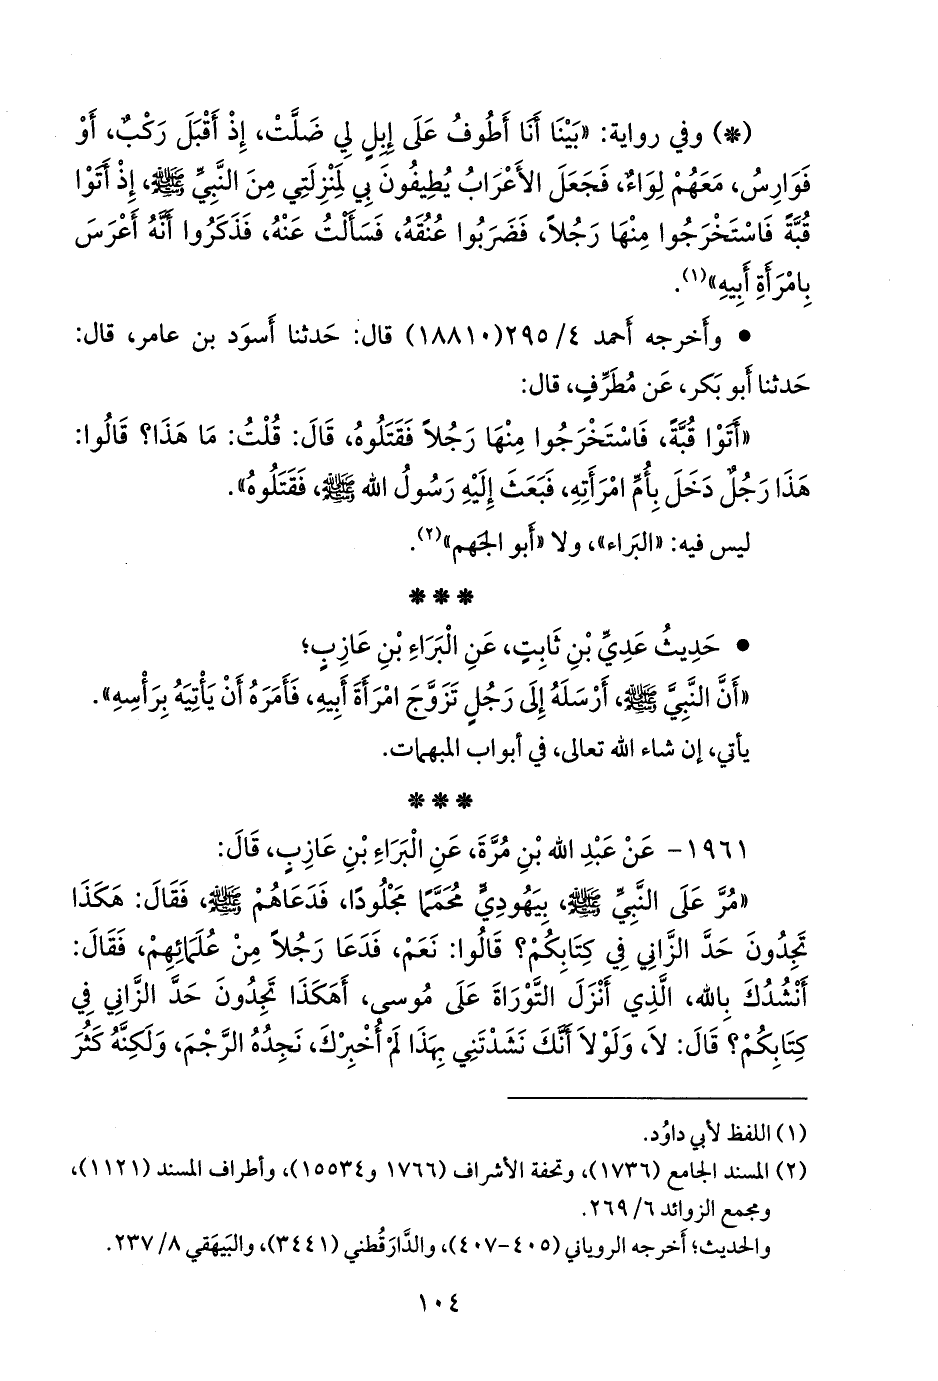 (*) وفي رواية: «بَيْنَا أَنَا أَطُوفُ عَلَى إِبِلٍ لِي ضَلَّتْ، إِذْ أَقْبَلَ رَكْبٌ، أَوْ
فَوَارِسُ، مَعَهُمْ لِوَاءٌ، فَجَعَلَ الأَعْرَابُ يُطِيفُونَ بِي لِمَنْزِلَتِي مِنَ النَّبِيِّ ﷺ، إِذْ أَتَوْا
قُبَّةً فَاسْتَخْرَجُوا مِنْهَا رَجُلاً، فَضَرَبُوا عُنُقَهُ، فَسَأَلْتُ عَنْهُ، فَذَكَرُوا أَنَّهُ أَعْرَسَ
بِامْرَأَةِ أَبِيهِ»(١).
• وأَخرجه أَحمد ٤/ ٢٩٥(١٨٨١٠) قال: حَدثنا أَسوَد بن عامر، قال:
حَدثنا أَبو بَكر، عَن مُطَرِّفٍ، قال:
«أَتَوْا قُبَّةً، فَاسْتَخْرَجُوا مِنْهَا رَجُلاً فَقَتَلُوهُ، قَالَ: قُلْتُ: مَا هَذَا؟ قَالُوا:
هَذَا رَجُلٌ دَخَلَ بِأُمِّ امْرَأَتِهِ، فَبَعَثَ إِلَيْهِ رَسُولُ الله ﷺ، فَقَتَلُوهُ».
ليس فيه: «البَراء»، ولا «أَبو الجَهم»(٢).
* * *
• حَدِيثُ عَدِيِّ بْنِ ثَابِتٍ، عَنِ الْبَرَاءِ بْنِ عَازِبٍ؛
«أَنَّ النَّبِيَّ ﷺ، أَرْسَلَهُ إِلَى رَجُلٍ تَزَوَّجَ امْرَأَةَ أَبِيهِ، فَأَمَرَهُ أَنْ يَأْتِيَهُ بِرَأْسِهِ».
يأتي، إن شاء الله تعالى، في أبواب المبهمات.
* * *
١٩٦١- عَنْ عَبْدِ الله بْنِ مُرَّةَ، عَنِ الْبَرَاءِ بْنِ عَازِبٍ، قَالَ:
«مُرَّ عَلَى النَّبِيِّ ﷺ، بِيَهُودِيٍّ مُحَمَّمًا مَجْلُودًا، فَدَعَاهُمْ ﷺ، فَقَالَ: هَكَذَا
تَجِدُونَ حَدَّ الزَّانِي فِي كِتَابِكُمْ؟ قَالُوا: نَعَمْ، فَدَعَا رَجُلاً مِنْ عُلَمَائِهِمْ، فَقَالَ:
أَنْشُدُكَ بِالله، الَّذِي أَنْزَلَ التَّوْرَاةَ عَلَى مُوسى، أَهَكَذَا تَجِدُونَ حَدَّ الزَّانِي فِي
كِتَابِكُمْ؟ قَالَ: لاَ، وَلَوْلاَ أَنَّكَ نَشَدْتَنِي بِهَذَا لَمْ أُخْبِرْكَ، نَجِدُهُ الرَّجْمَ، وَلَكِنَّهُ كَثُرَ
(١) اللفظ لأَبي داوُد.
(٢) المسند الجامع (١٧٣٦)، وتحفة الأشراف (١٧٦٦ و١٥٥٣٤)، وأطراف المسند (١١٢١)،
ومجمع الزوائد ٦/ ٢٦٩.
والحديث؛ أَخرجه الروياني (٤٠٥-٤٠٧)، والدَّارَقُطني (٣٤٤١)، والبَيهَقي ٨/ ٢٣٧.
١٠٤